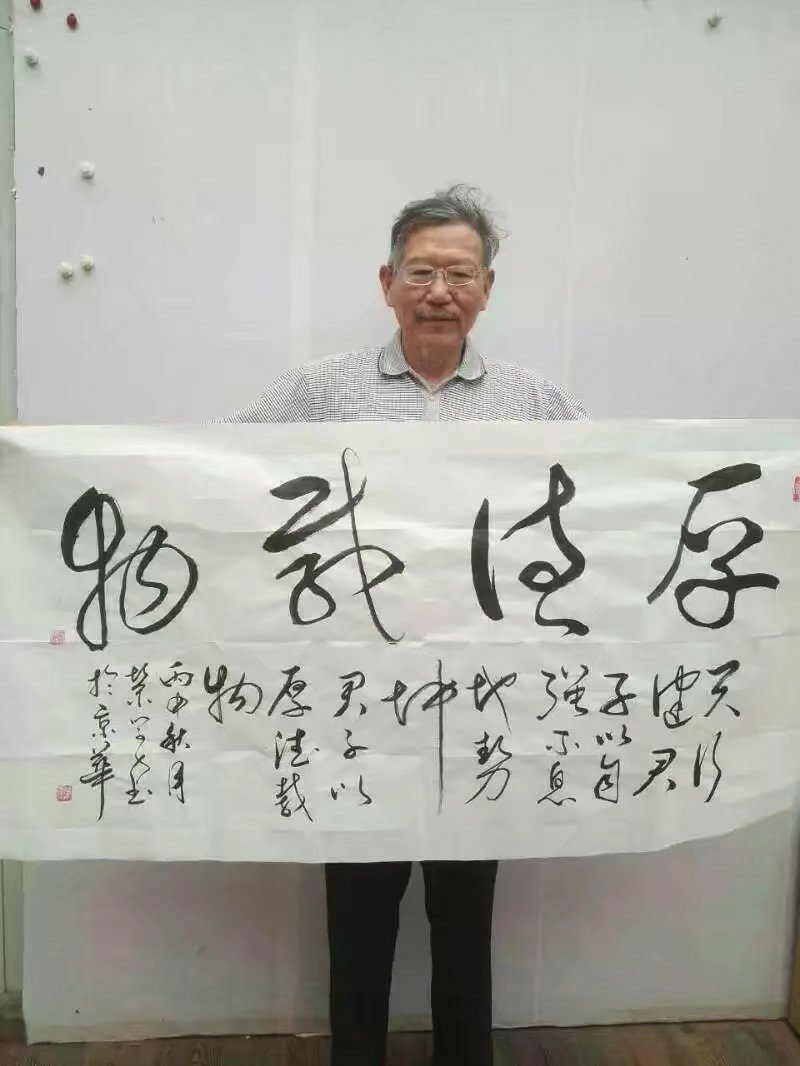 厚德载物
天行
健君
子以自
强不息
地势
坤
君子以
厚德载
物
丙申秋月
於京華